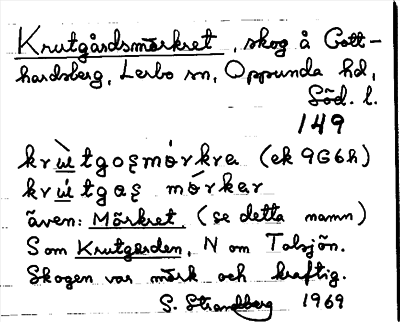 Krutgårdsmörkret, skog å Gott-
hardsberg, Lerbo sn, Oppunda hd,
Söd. l.
149
krùtgoʂmörkra (ek 9G6h)
krútgaʂ mörkər
även: Mörkret. (se detta namn)
S om Krutgården, N om Talsjön.
Skogen var mörk och kraftig.
S. Strandberg 1969